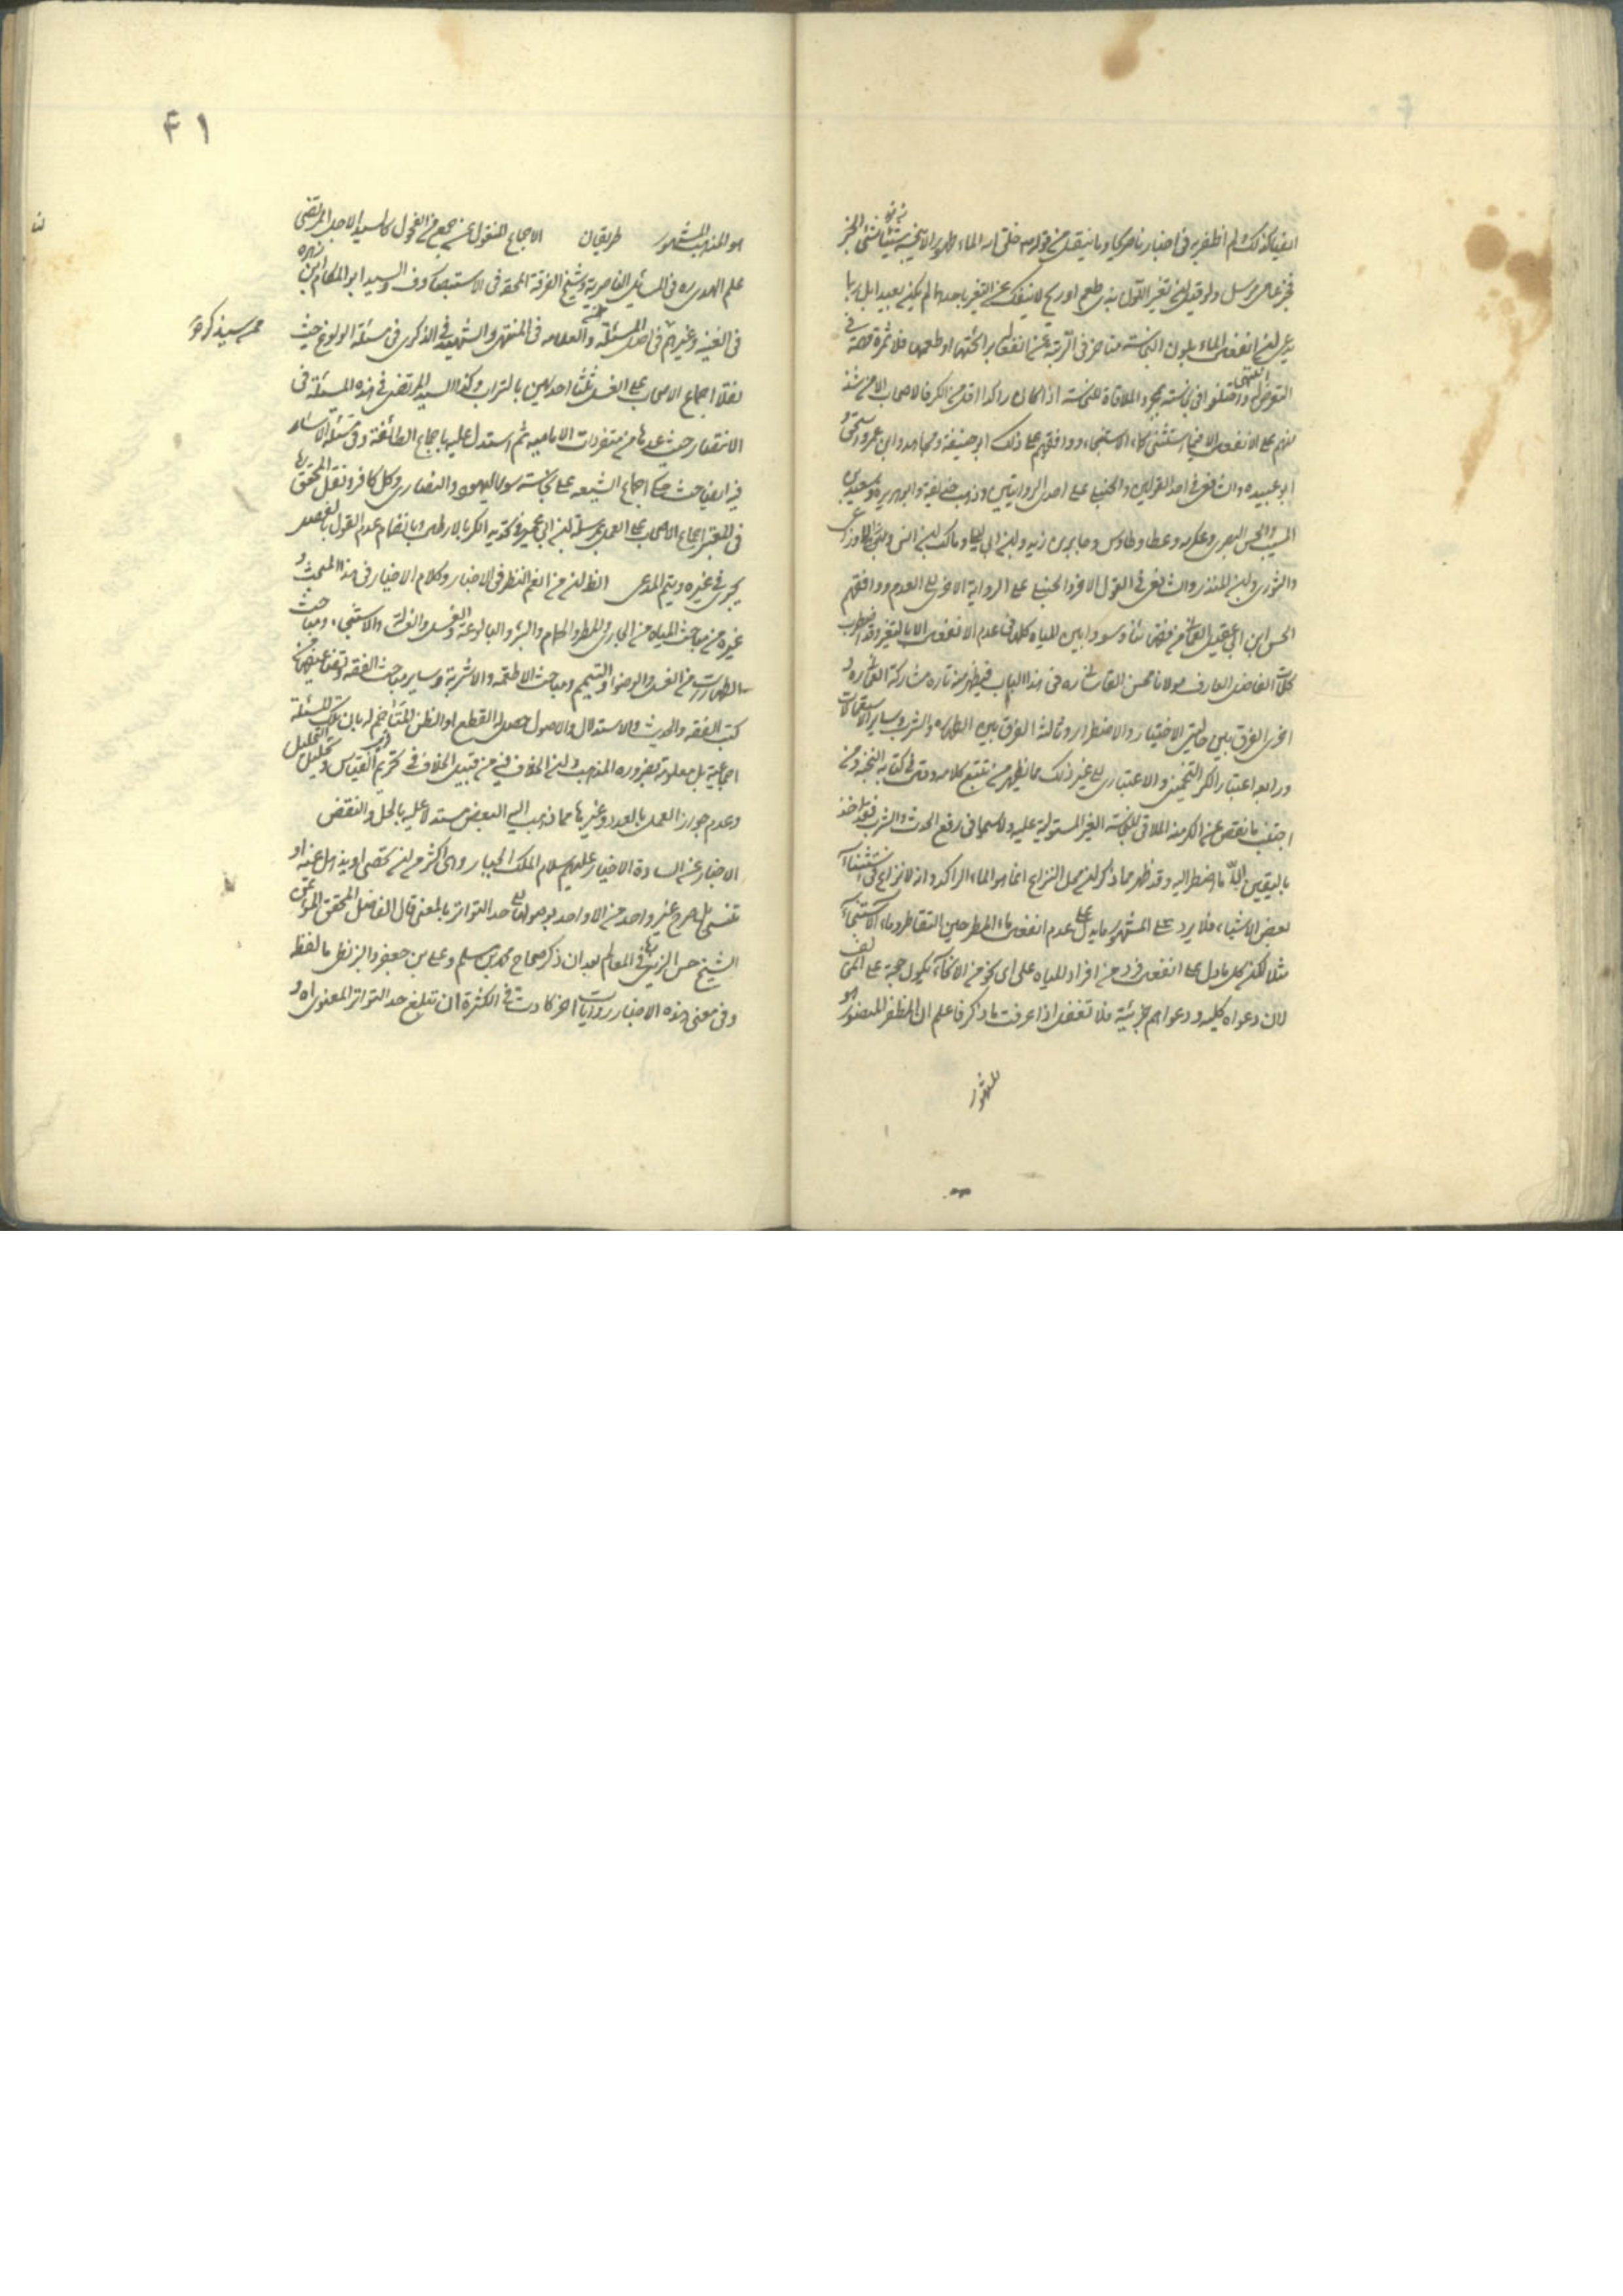 ايضا كذلك لم اظفر به في اخبارنا صريحا وما ينقل من قوله خلق الله الماء طهورا لا ينجسه شيء
فخبر عامي مرسل ولو قيل تغير اللون بدون طعم او ريح لا ينفك عن التغير باحدهما لم يكن بعيدا بل ربما
يدعى انفعال الماء بلون النجاسة متاخر في الرتبة عن انفعاله برائحتها او طعمها فلا ثمرة
التعرض انتهى واختلفوا في نجاسته بمجرد الملاقاة للنجاسة اذا كان راكدا اقل من الكر فالاصحاب الا من شذ
منهم على الانفعال الا فيما استثني كماء الاستنجاء ووافقهم على ذلك ابو حنيفة ومجاهد وابن عمر واسحق
ابو عبيدة والشافعي في احد القولين والحنبلي على احدى الروايتين وذهب حذيفة وابو هريرة وسعيد بن
المسيب والحسن البصري وعكرمه وعطا وطاوس وجابر بن زيد وابن ابي ليلى ومالك بن انس والاوزاعي
والثوري وابن المنذر والشافعي في القول الاخر والحنبلي على الرواية الاخرى الى العدم ووافقهم
الحسن ابن ابي عقيل العماني من وسووا بين المياه كلها في عدم الانفعال الا بالتغير وقد اضطرب
كلمات الفاضل العارف مولانا محسن القاشاني ره في هذا الباب فيظهر منه تاره مشاركة العماني ره و
اخرى الفرق بين حالتي الاختيار والاضطرار وثالثة الفرق بين الطهارة والشرب وساير الاستعمالات
ورابعا اعتبار الكر التخميني والاعتباري الى غير ذلك مما يظهر من تتبع كلامه وقال في كتابه النخبة ومن
اجتنب ما نقص عن الكر منه الملاقي للنجاسة الغير المستولية عليه ولا سيما في رفع الحدث والشرب فقد اخذ
باليقين الا ما اضطر اليه وقد ظهر مما ذكر ان محل النزاع انما هو الماء الراكد واذ لا نزاع في استثناء
بعض الاشياء فلا يرد على المشهور ما يدل على عدم انفعال ماء المطر حين التقاطر وماء الاستنجاء
مثلا لكن كل ما دل على انفعال فرد من افراد المياه على اي نحو من الانحاء يكون حجة على المخالف
لان دعواه كلية ودعواهم جزئية فلا تغفل اذا عرفت ما ذكر فاعلم ان المظفر المنصور هو
المشهور
٤١
هو المذهب المشهور طريقان الاجماع المنقول عن جمع من الفحول كالسيد الاجل المرتضى
علم الهدى ره في المسائل الناصرية وشيخ الفرقة المحقة في الاستبصار والسيد ابو المكارم ابن زهره
في الغنيه وغيرهم في اصل المسئلة والعلامه في المنتهى والشهيد في الذكرى في مسئلة الولوغ حيث
نقلا اجماع الاصحاب على الغسل ثلثا احديهن بالتراب وكذا السيد المرتضى في هذه المسئلة في
الانتصار حيث عدها من متفردات الاماميه ثم استدل عليه باجماع الطائفة وفي مسئلة الاسار
فيه ايضا حيث حكى اجماع الشيعه على نجاسة سور اليهودي والنصراني وكل كافر ونقل المحقق
في المعتبر اجماع الاصحاب على العمل بمرسلة ابن ابي عمير في تحديد الكر بالارطال وبانضمام عدم القول بالفصل
يجري في غيره ويتم المدعى الثاني ان من انعم النظر في الاخبار وكلام الاخيار في هذا المبحث و
غيره من مباحث المياه من الجاري والمطر والحمام والبئر والبالوعة والغسل والغسالة والاستنجاء ومباحث
الطهارات من الغسل والوضوء والتيمم ومباحث الاطعمة والاشربة وساير مباحث الفقه
كتب الفقه والحديث والاستدلال والاصول حصل له القطع او الظن المتاخم له بان تلك المسئلة
اجماعية بل معلومة بضروره المذهب وان الخلاف فيه من قبيل الخلاف في تحريم القياس وتحليل
وعدم جواز العمل بالعدد وغيرها مما ذهب اليه البعض مستدلا عليه بالحل والنقض
الاخبار عن السادة الاخيار عليهم سلام الملك الجبار وهي اكثر من ان تحصى او يذهل عنه او
تنسى بل صرح غير واحد من الاواحد بوصولها الى حد التواتر بالمعنى قال الفاضل المحقق المؤتمن
الشيخ حسن الزين في المعالم بعد ان ذكر صحاح محمد بن مسلم وعلي بن جعفر والبزنطي ما لفظه
وفي معنى هذه الاخبار روايات اخر كادت في الكثرة ان تبلغ حد التواتر المعنوي اه و